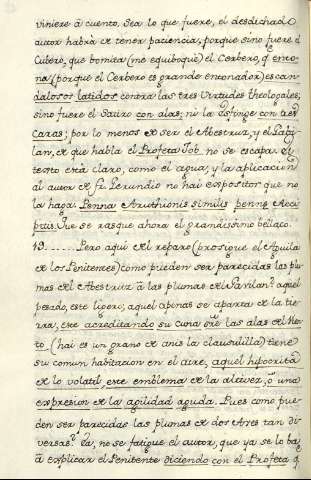 viniere à cuento. Sea lo que fuere, el desdichado
autor habrà de tener paciencia, porque sino fuere el
Cubero, que bomita (me equiboquè) el Cerbero, q̃ enco-
na (porque el Cerbero es grande enconador) escan
dalosos latidos contra las tres Virtudes theologales;
sino fuere el Sauro con alas; ni la esfinge con tres
caras; por lo menos de ser el Abestruz, y el
de que habla el Profeta Job no se escapa. El
texto està claro, como el agua; y la aplicacion
al autor de fr. Gerundio no hai expositor que no
la haga: Penna Struthionis similis penne Acci
pitris. Que se rasque ahora el grandissimo bellaco.
19. Pero aqui del reparo (prosigue el Aguila
de los Penitentes) como pueden ser parecidas las plu
mas del Abestruz à las plumas del Gavilan? aquel
pesado, este ligero; aquel apenas se aparta de la tie
rra, este acreditando su cuna sobre las alas del Vien-
to. (hai es un grano de anis la clausulilla) tiene
su comun habitacion en el aire, aquel hipocrita
de lo volatil, este emblema de la altivez, ò una
expresion de la agilidad aguda. Pues como pue-
den ser parecidas las plumas de dos Aves tan di
versas? Ea, no se fatigue el autor, que ya se lo ba
à explicar el Penitente diciendo con el Profeta q̃